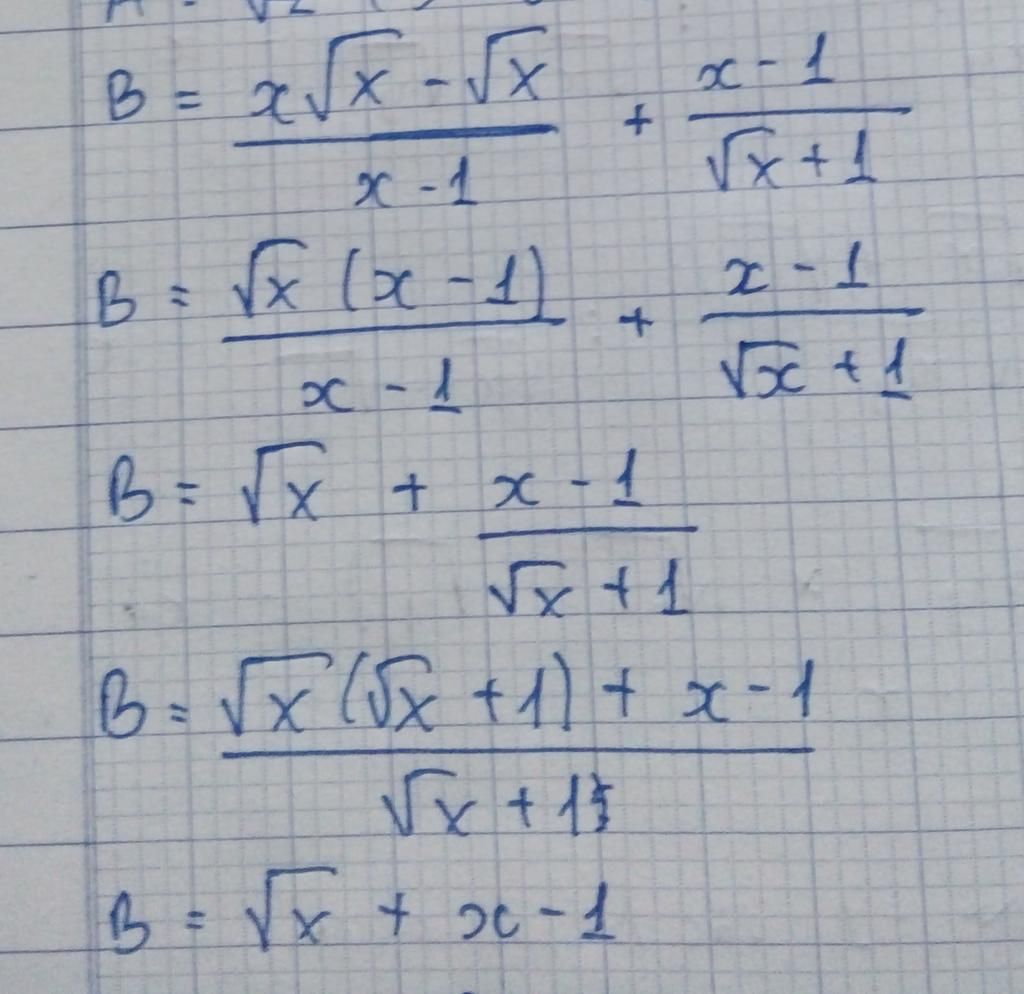 B = (x√x - √x)/(x - 1) + (x - 1)/(√x + 1)
B = (√x (x - 1))/(x - 1) + (x - 1)/(√x + 1)
B = √x + (x - 1)/(√x + 1)
B = (√x (√x + 1) + x - 1)/(√x + 1)
B = √x + x - 1